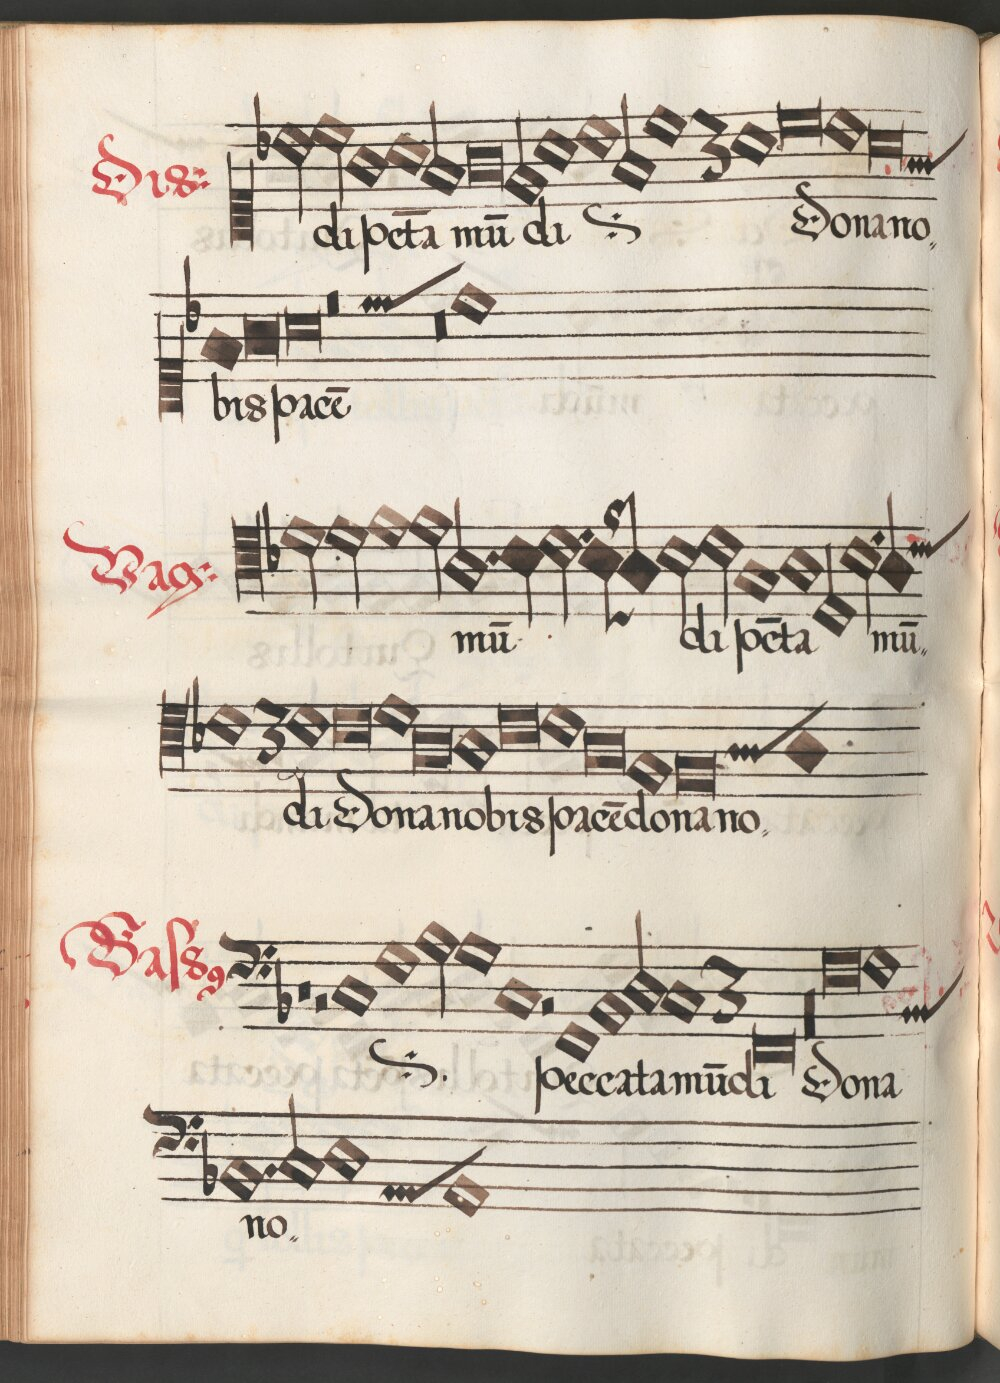 Dis:
di pct̄a mū di S: Dona no
bis pacē
Vag:
mū di pct̄a mū
di Dona nobis pacē dona no
Bass9
S. peccata mūdi Dona
no